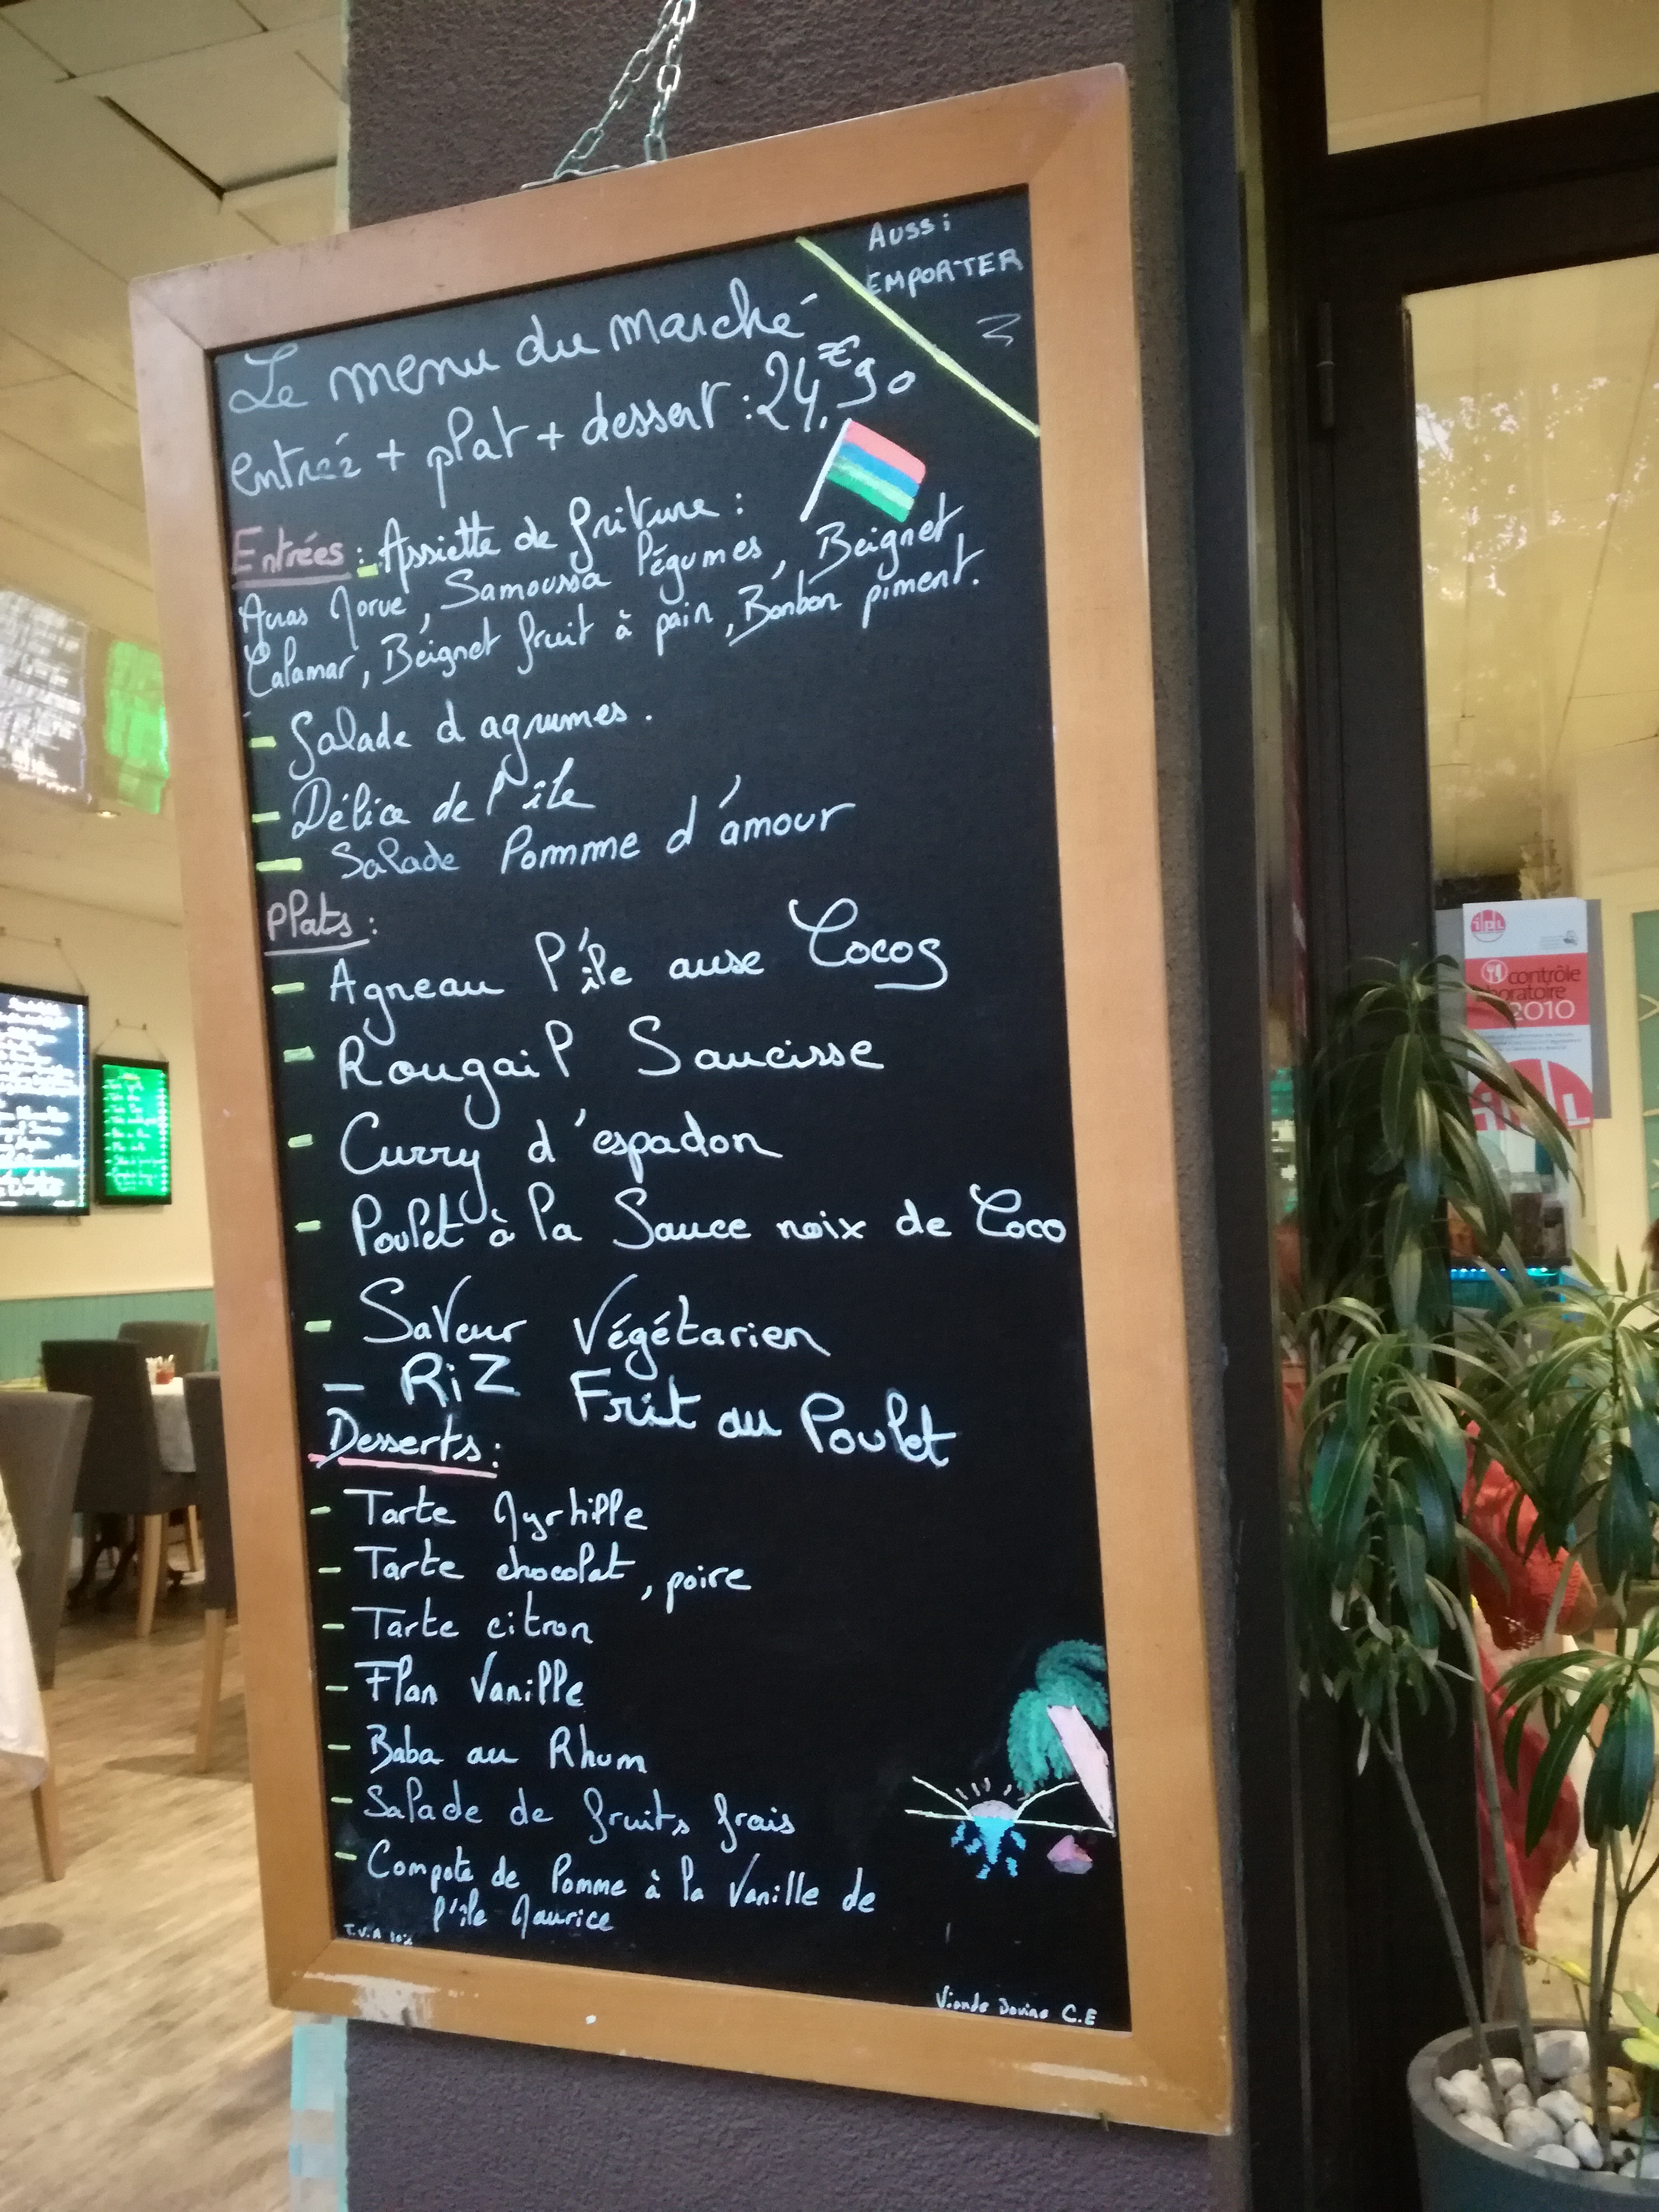 Aussi
EMPORTER
Le menu du marché
entrée + plat + dessert : 24,€90
Entrées : - Assiette de friture :
Acras Morue, Samoussa légumes, Beignet
Calamar, Beignet fruit à pain, Bonbon piment.
- Salade d agrumes.
- Délice de l'île
- Salade Pomme d'amour
Plats :
- Agneau l'île ause Cocos
- Rougail Saucisse
- Curry d'espadon
- Poulet à la Sauce noix de Coco
- Saveur Végétarien
- RiZ Frit au Poulet
Desserts :
- Tarte Myrhille
- Tarte chocolat, poire
- Tarte citron
- Flan Vanille
- Baba au Rhum
- Salade de fruits frais
- Compote de Pomme à la Vanille de
l'île Maurice
T.V.A 10%
Viande C.E
contrôle
laboratoire
2010